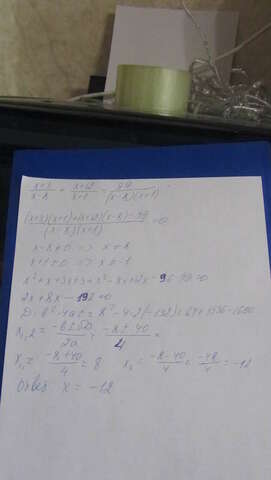 \frac{x+3}{x-8} + \frac{x+12}{x+1} = \frac{99}{(x-8)(x+1)}
\frac{(x+3)(x+1)+(x+12)(x-8)-99}{(x-8)(x+1)} = 0
x-8≠0 => x≠8
x+1≠0 => x≠-1
x²+x+3x+3+x²-8x+12x-96-99=0
2x+8x-192=0
D=b²-4ac=8²-4·2·(-192)=64+1536=1600
x_{1,2}=\frac{-b±√D}{2a}=\frac{-8±40}{4}=
x_1=\frac{-8+40}{4}=8 x_2=\frac{-8-40}{4}=\frac{-48}{4}=-12
Ответ x=-12